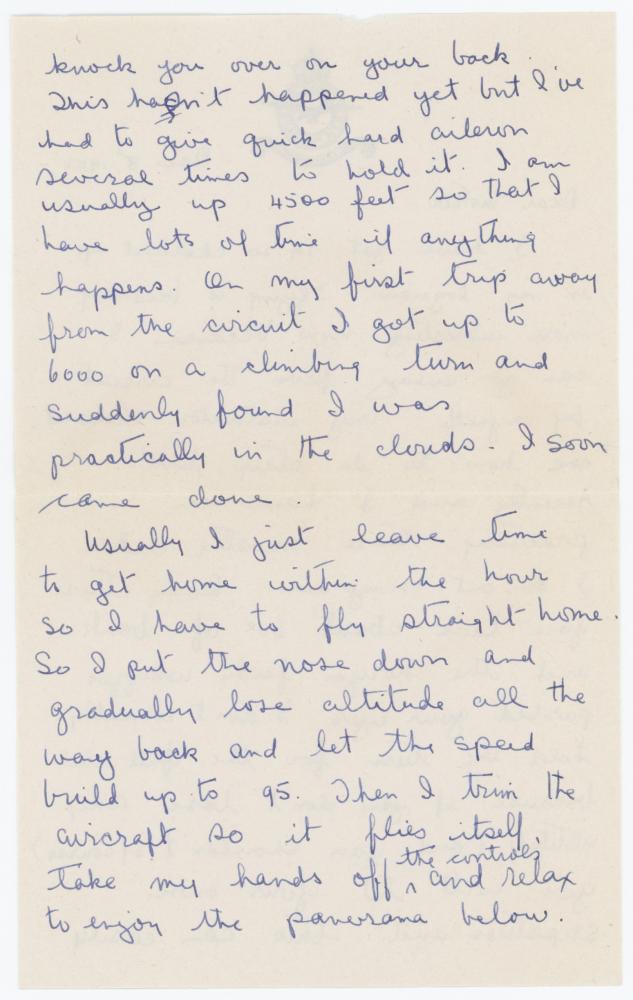 knock you over on your back.
This hasn't happened yet but I've
had to give quick hard aileron
several times to hold it. I am
usually up 4500 feet so that I
have lots of time if anything
happens. On my first trip away
from the circuit I got up to
6000 on a climbing turn and
suddenly found I was
practically in the clouds. I soon
came done.
Usually I just leave time
to get home within the hour
so I have to fly straight home.
So I put the nose down and
gradually lose altitude all the
way back and let the speed
build up to 95. Then I trim the
aircraft so it flies itself,
take my hands off the controls and relax
to enjoy the panorama below.